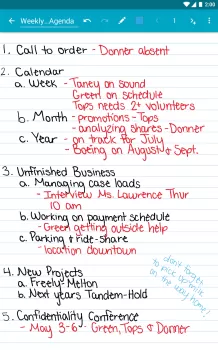 2:00
Weekly...Agenda
1. Call to order - Donner absent
2. Calendar
a. Week - Taney on sound
Green on schedule
Tops needs 2+ volunteers
b. Month - promotions - Tops
- analyzing shares - Donner
c. Year - on track for July
- Boeing on August & Sept.
3. Unfinished Business
a. Managing case loads
- Interview Ms. Lawrence Thur
10 am
b. Working on payment schedule
- Green getting outside help
c. Parking & ride-share
- location downtown
4. New Projects
a. Freely-Melton
b. Next years Tandem-Hold
don't forget
to pick
on the way home!
5. Confidentiality Conference
- May 3-6 - Green, Tops & Donner